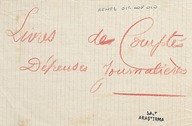 Livres de Comptes
Dépenses Journalières
SALT
ARAŞTIRMA